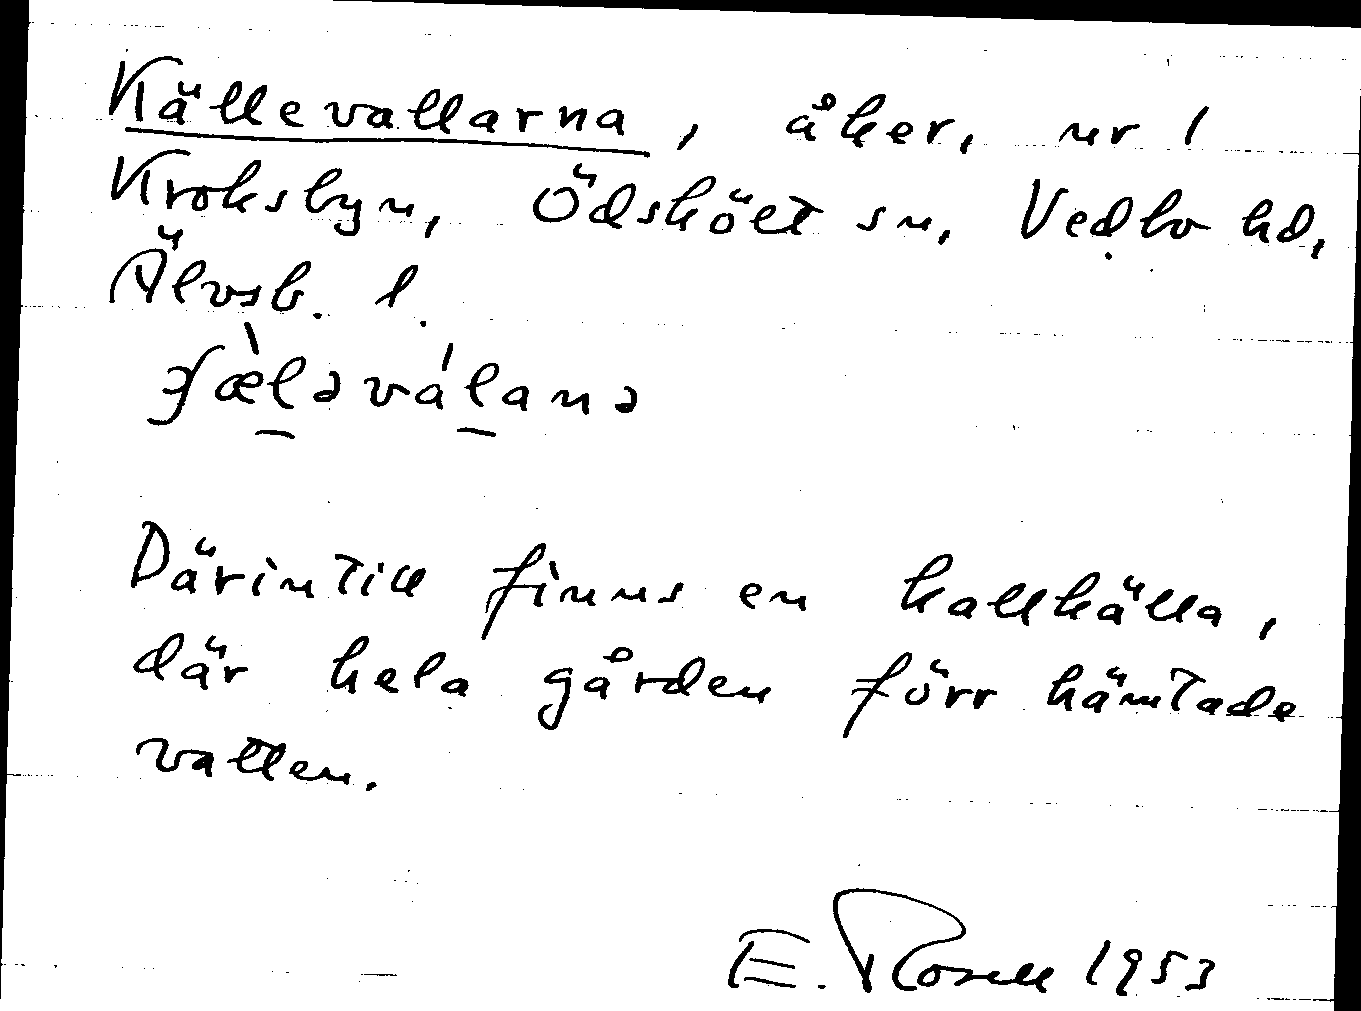 Källevallarna, åker, nr 1
Kroksbyn, Ödskölt sn, Vedbo hd,
Älvsb. l.
Därintill finns en kallkälla,
där hela gården förr hämtade
vatten.
E. Rosell 1953